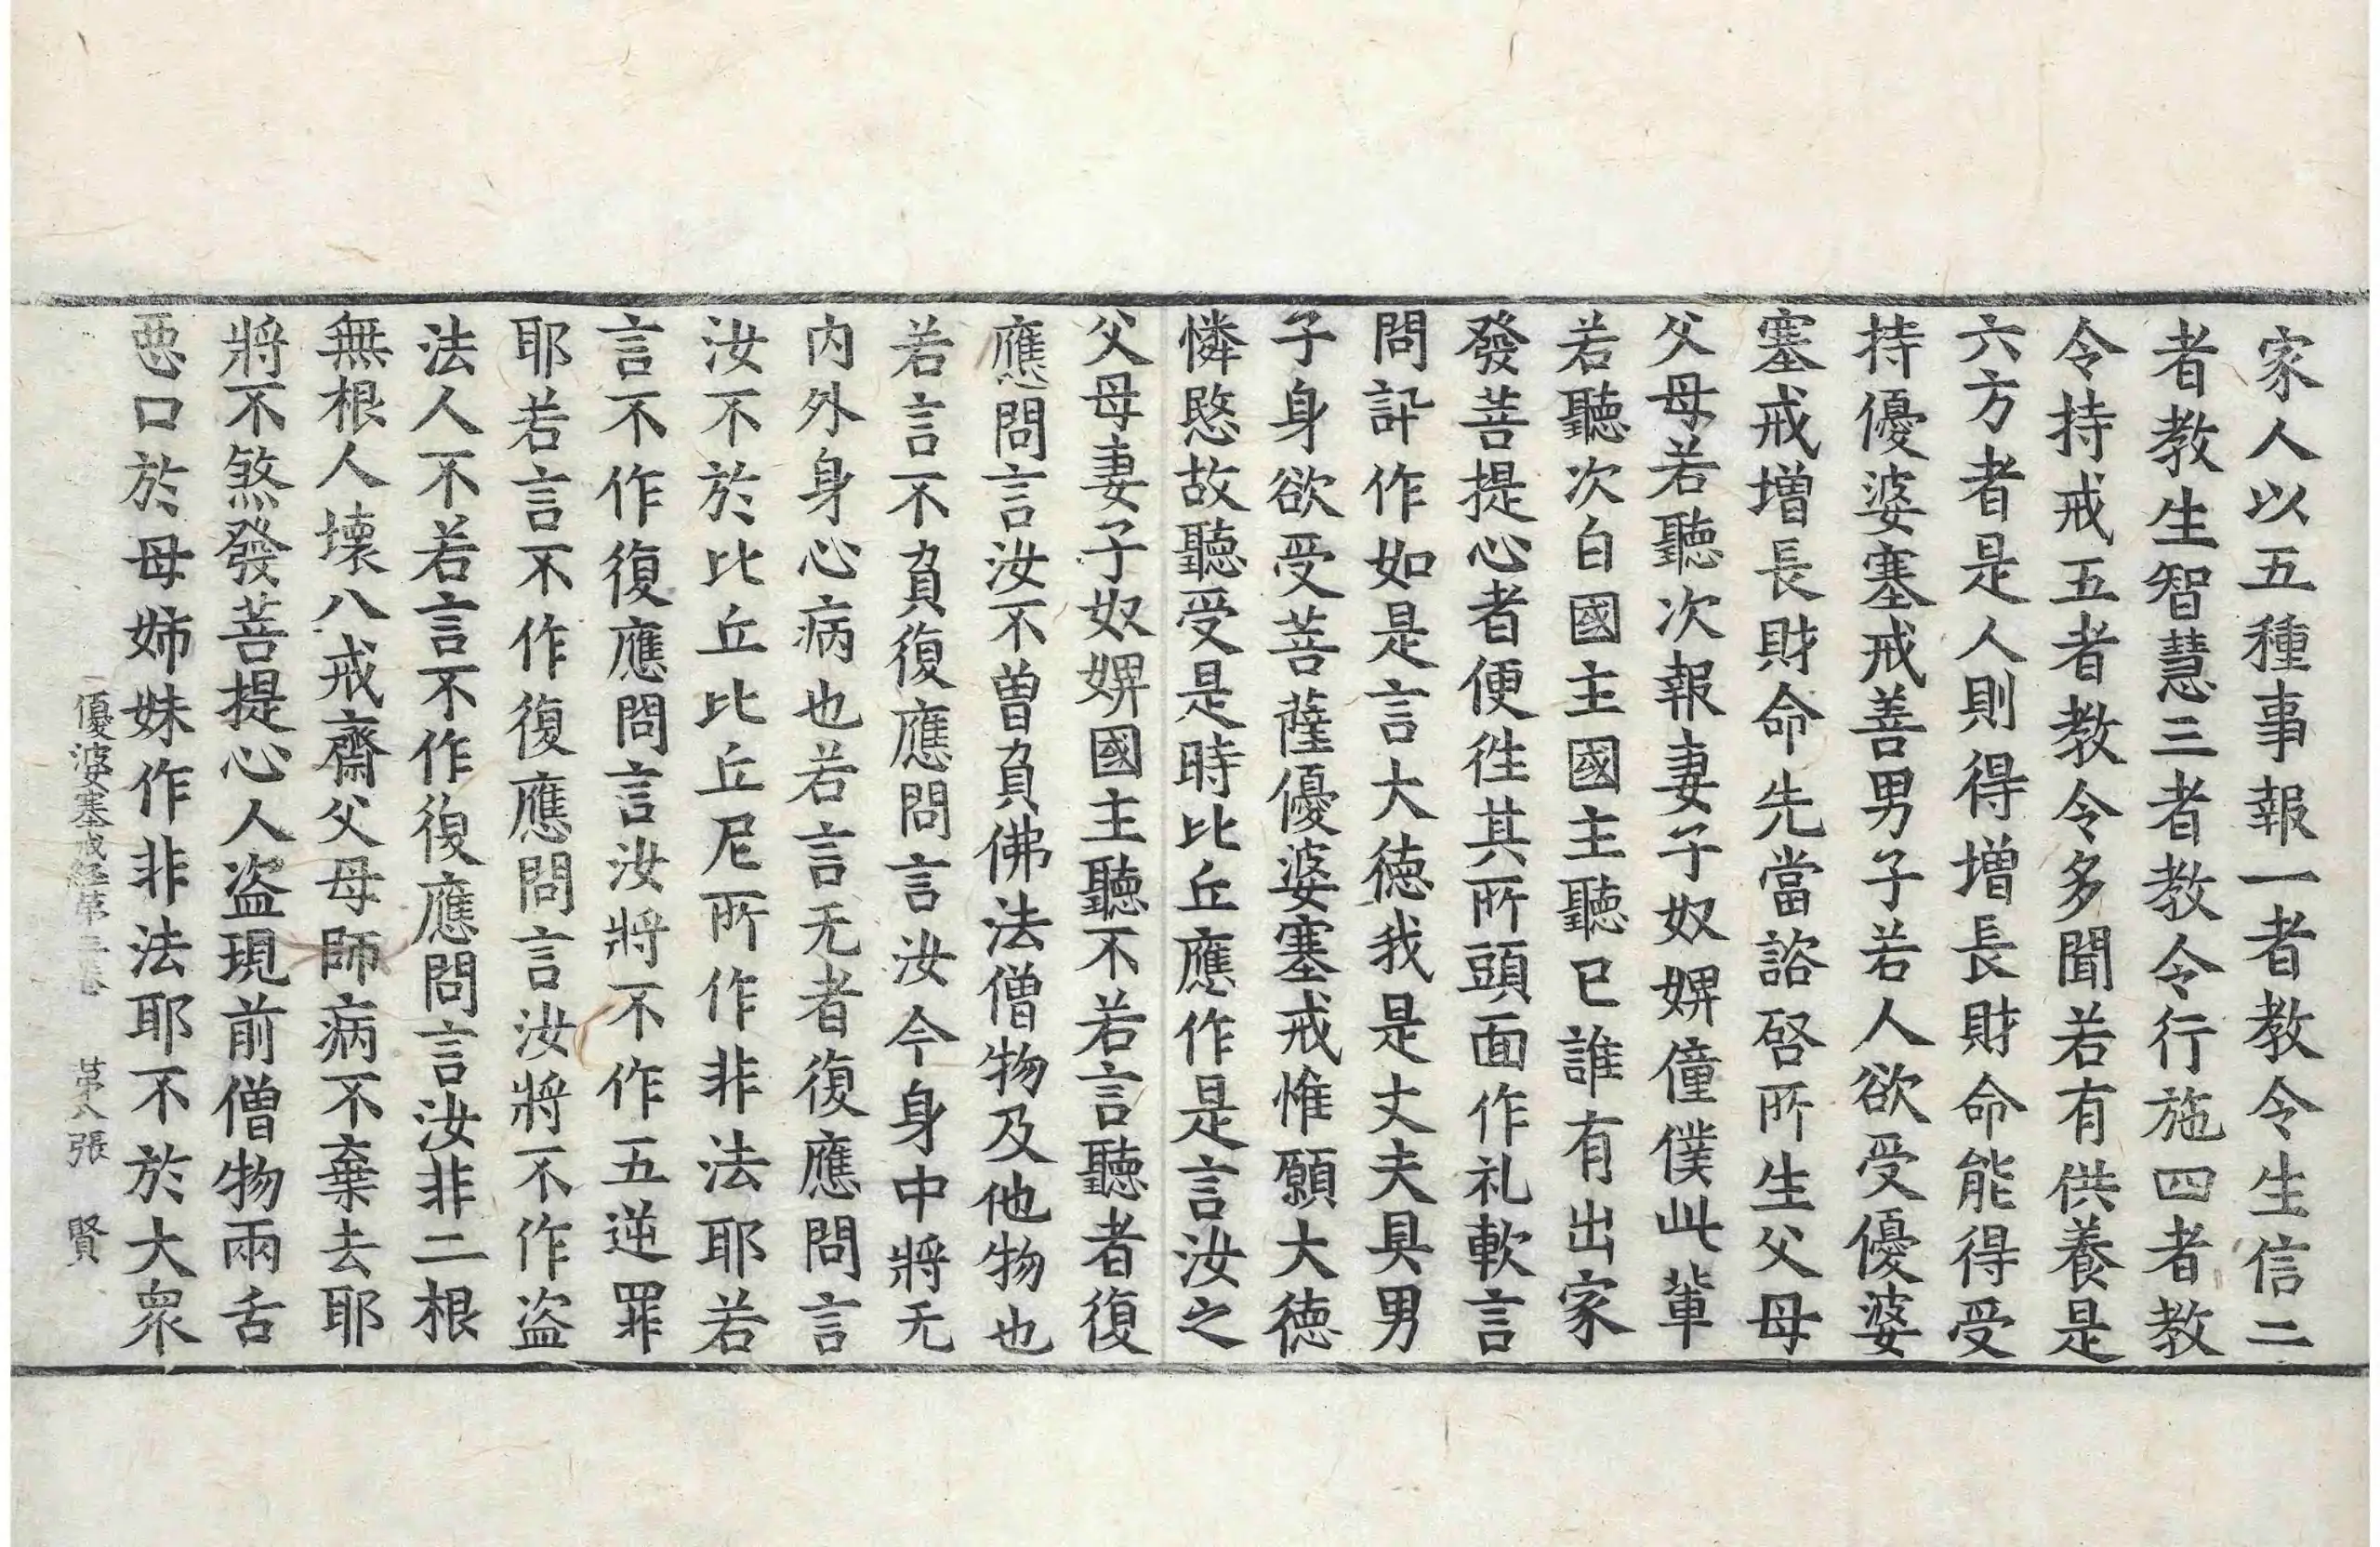 家人以五種事報一者教令生信二
者教生智慧三者教令行施四者教
令持戒五者教令多聞若有供養是
六方者是人則得增長財命能得受
持優婆塞戒善男子若人欲受優婆
塞戒增長財命先當諮啓所生父母
父母若聽次報妻子奴婢僮僕此輩
若聽次白國主國主聽已誰有出家
發菩提心者便往其所頭面作礼軟言
問訊作如是言大德我是丈夫具男
子身欲受菩薩優婆塞戒惟願大德
憐愍故聽受是時比丘應作是言汝之
父母妻子奴婢國主聽不若言聽者復
應問言汝不曾負佛法僧物及他物也
若言不負復應問言汝今身中將无
内外身心病也若言无者復應問言
汝不於比丘比丘尼所作非法耶若
言不作復應問言汝將不作五逆罪
耶若言不作復應問言汝將不作盜
法人不若言不作復應問言汝非二根
無根人壞八戒齋父母師病不棄去耶
將不煞發菩提心人盜現前僧物兩舌
惡口於母姊妹作非法耶不於大衆
優婆塞戒経第三卷 苐八張 賢